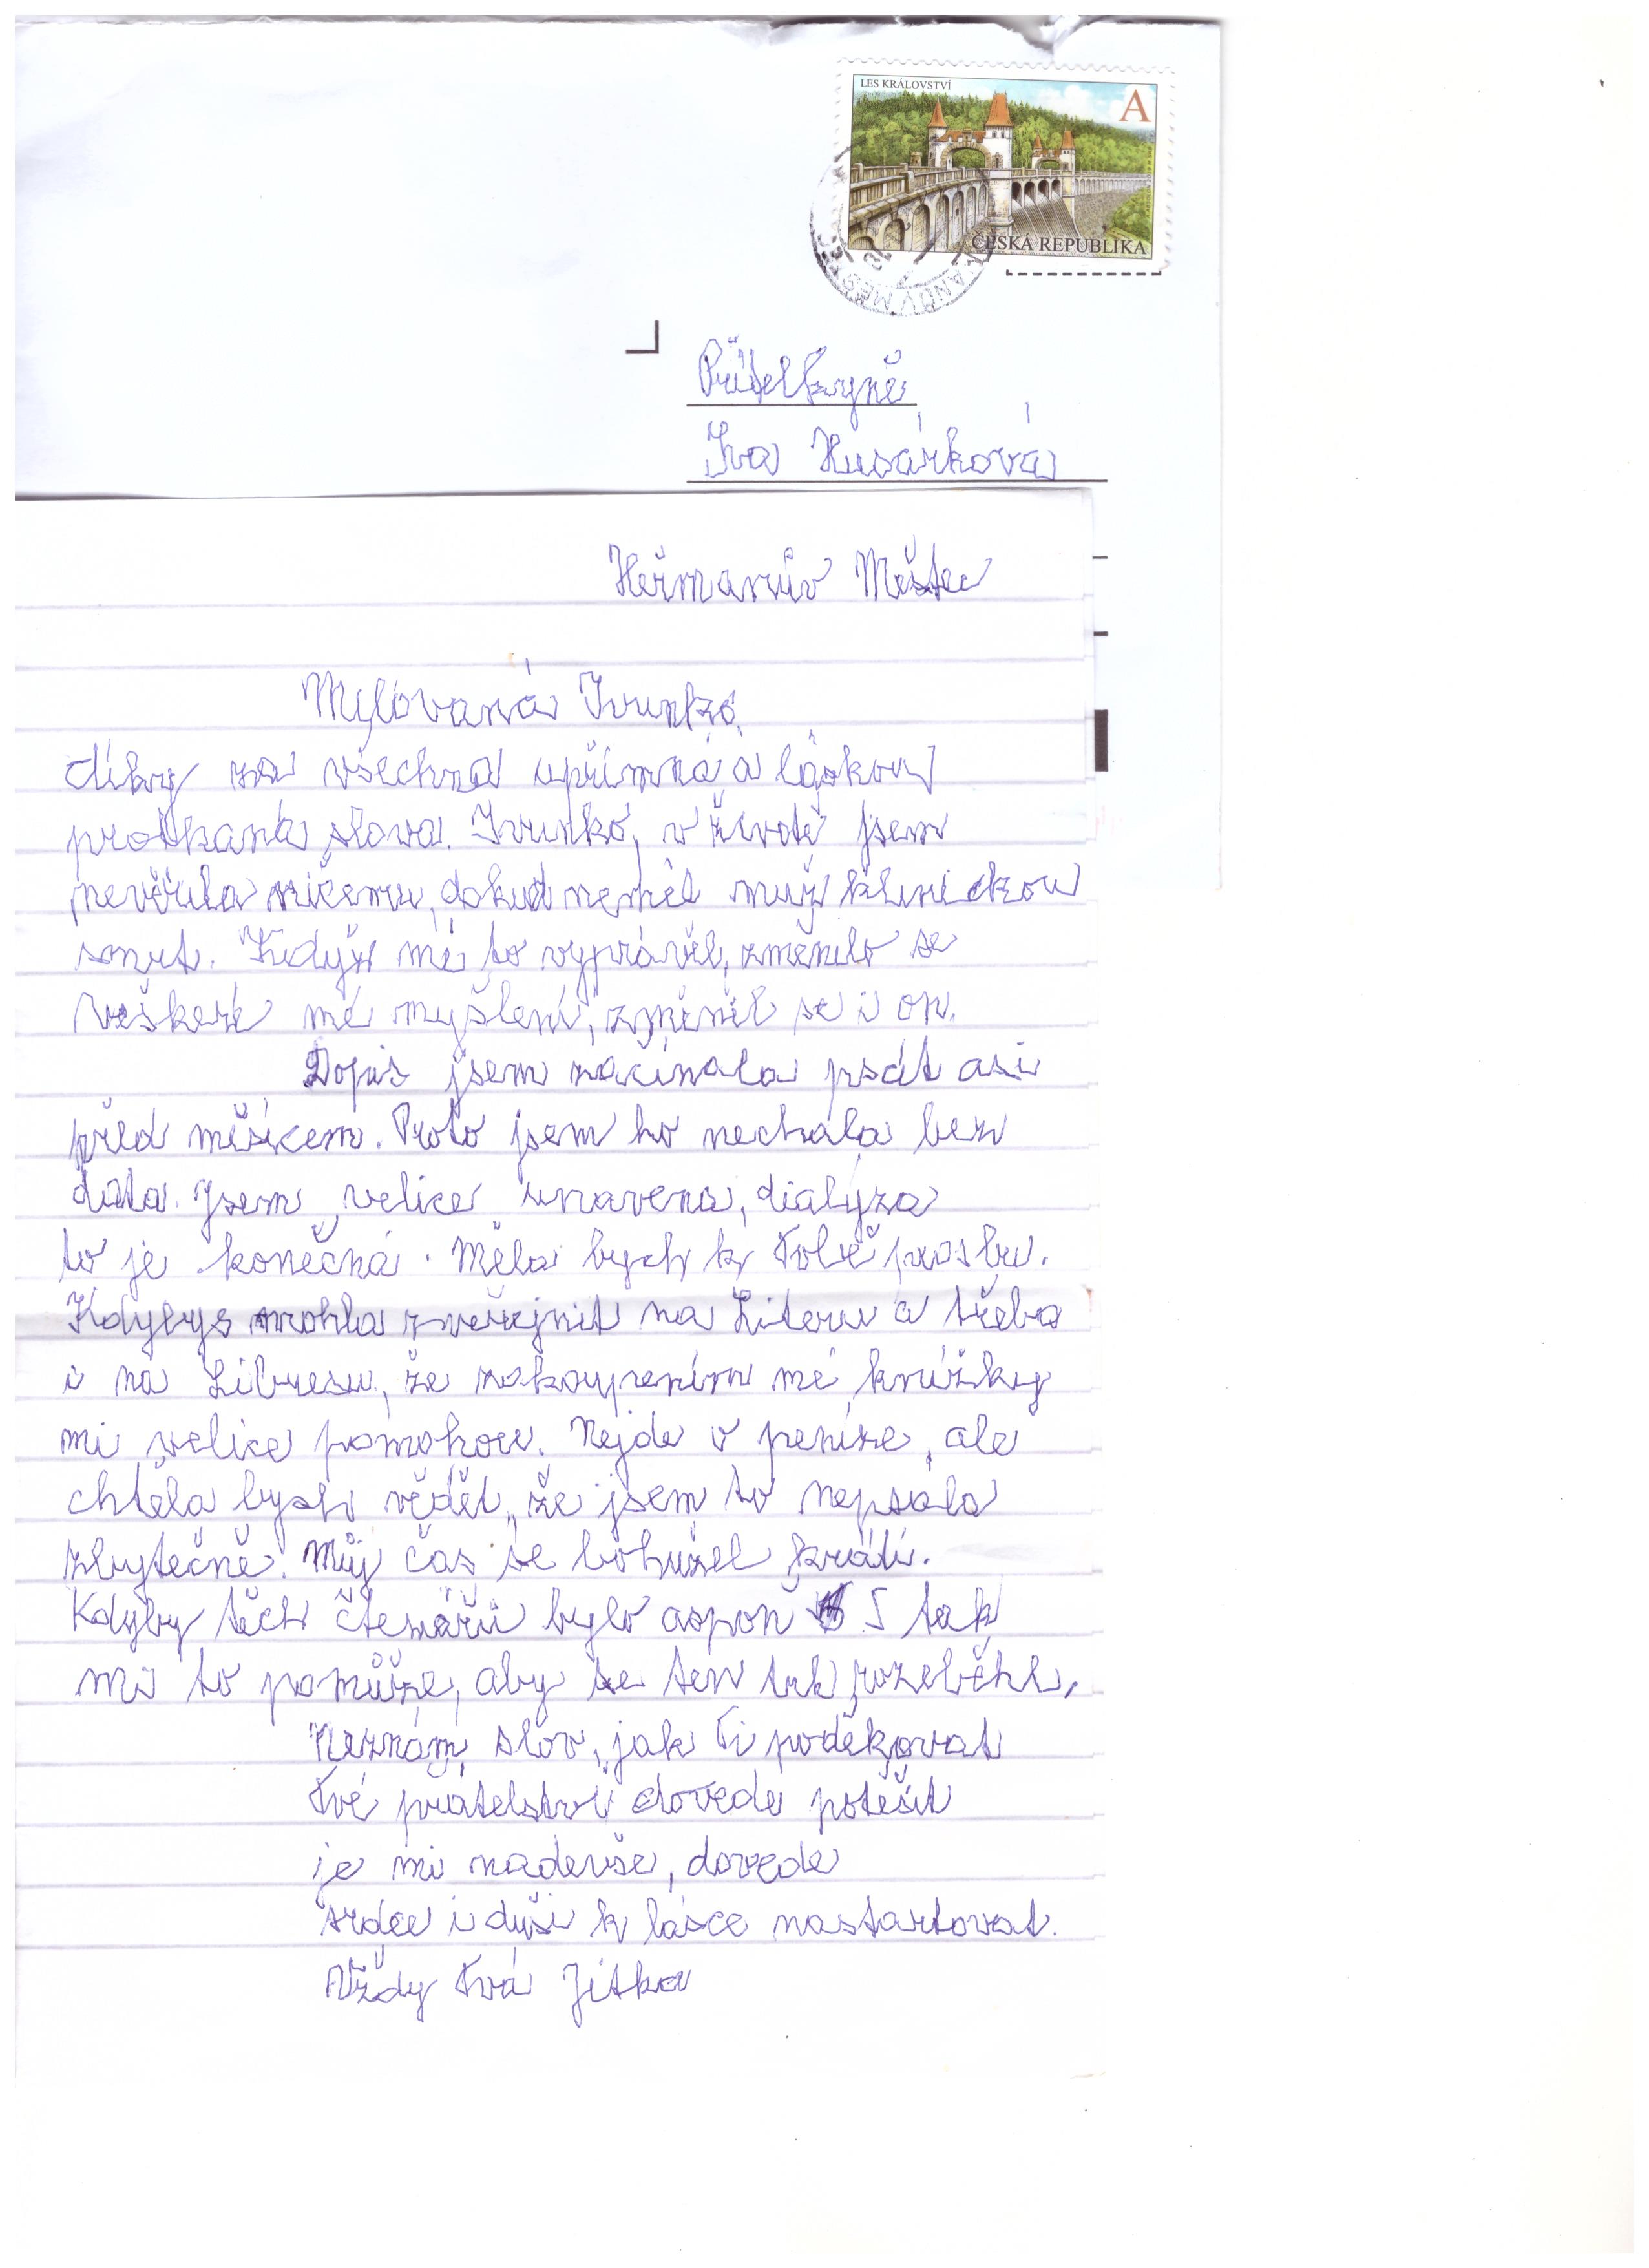 LES KRÁLOVSTVÍ
A
ČESKÁ REPUBLIKA
Přítelkyně
Iva Husárková
Heřmanův Městec
Milovaná Ivunko,
díky za všechna upřímná a láskou
protkaná slova. Ivunko, v životě jsem
nevěřila ničemu, dokud neměl muž klinickou
smrt. Když mě to vyprávěl, změnilo se
veškeré mé myšlení, změnil se i on.
Dopis jsem začínala psát asi
před měsícem. Proto jsem ho nechala bez
data. Jsem velice unavena, dialýza
to je konečná. Měla bych k Tobě prosbu.
Kdybys mohla zveřejnit na Literu a třeba
i na Libresu, že zakoupením mé knížky
mi velice pomohou. Nejde o peníze, ale
chtěla bych vědět, že jsem to nepsala
zbytečně. Můj čas se bohužel krátí.
Kdyby těch čtenářů bylo aspoň 5 tak
mi to pomůže, aby se ten tisk rozeběhl.
Neznám slov, jak Ti poděkovat
Tvé přátelství dovede potěšit
je mi nadevše, dovede
srdce i duši k lásce nastartovat.
Vždy Tvá Jitka